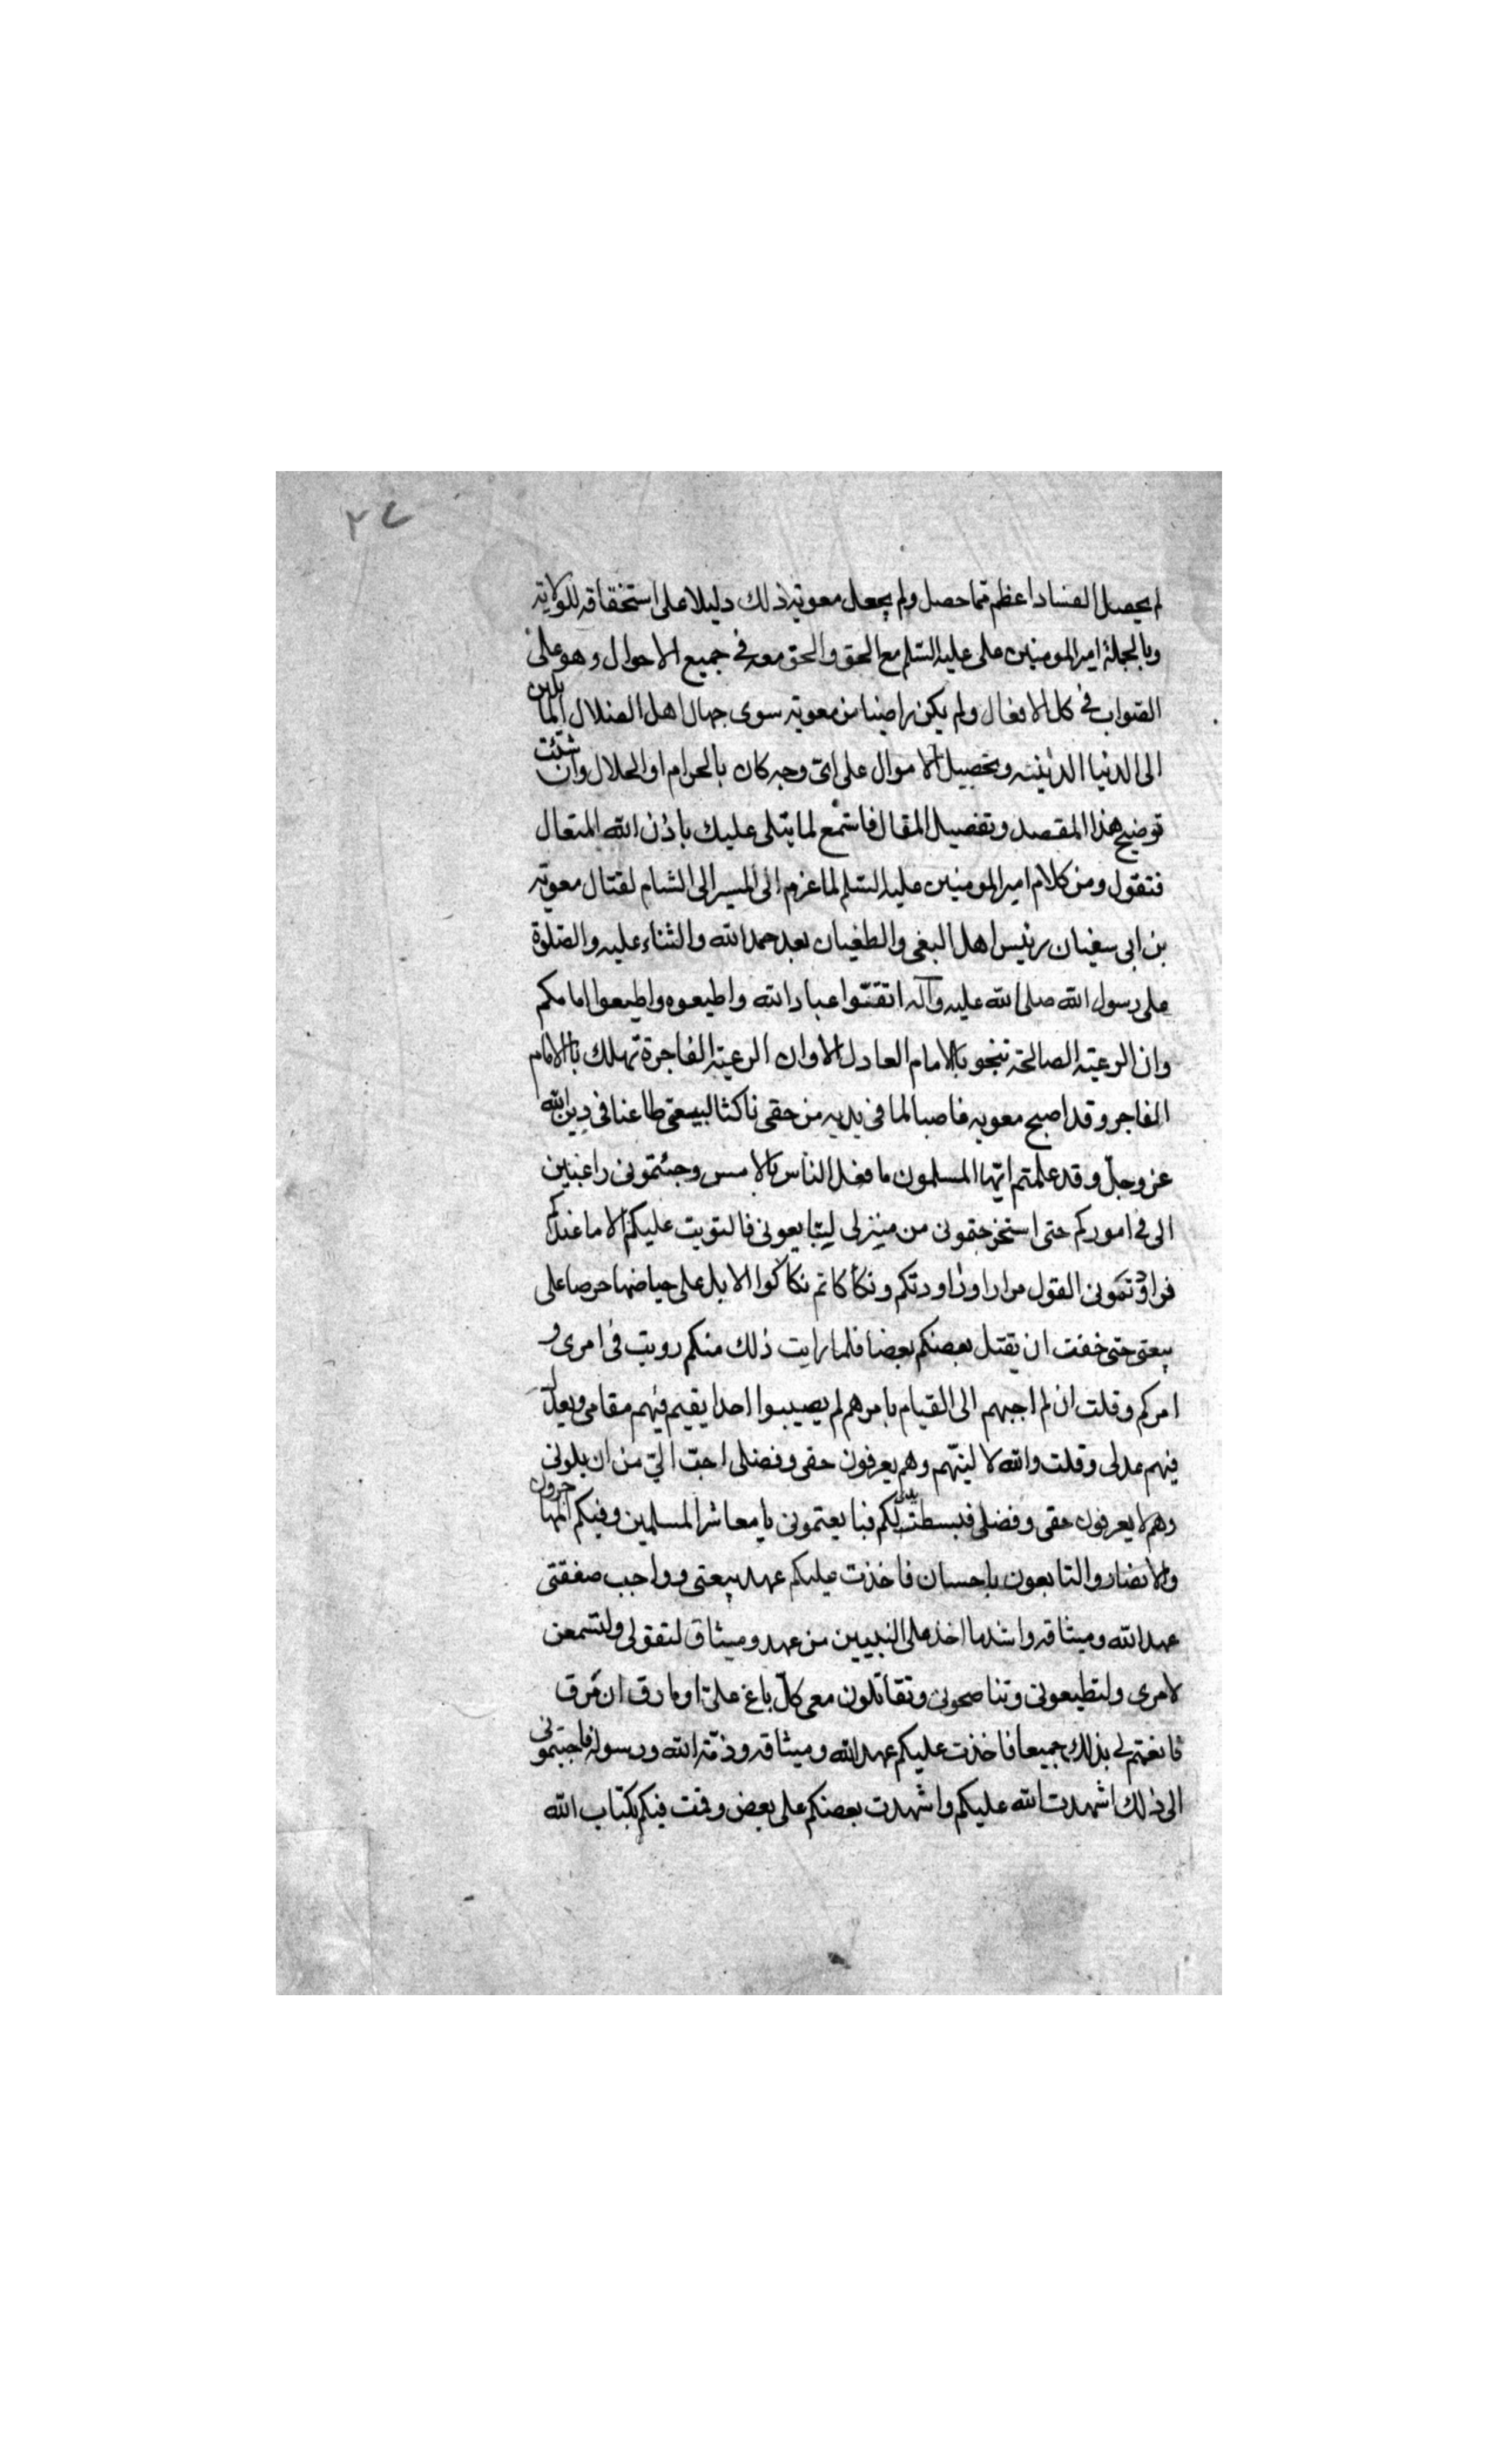 ٢٧
لم يحصل الفساد اعظم مما حصل ولم يجعل معوية ذلك دليلا على استحقاقه للولاية
وبالجملة امير المومنين على عليه السّلم مع الحق والحق معه في جميع الاحوال وهو على
الصّواب في كل الافعال ولم يكن راضيا من معوية سوى جهال اهل الضلال المايلين
الى الدنيا الدّنيّة وتحصيل الاموال على اىّ وجه كان بالحرام او الحلال وان شئت
توضيح هذا المقصد وتفصيل المقال فاستمع لما يتلى عليك باذن الله المتعال
فنقول ومن كلام امير المومنين عليه السّلم لما عزم الى المسير الى الشام لقتال معوية
بن ابى سفيان رئيس اهل البغى والطغيان بعد حمد الله والثناء عليه والصّلوة
على رسول الله صلى الله عليه وآله اتقوّا عباد الله واطيعوه واطيعوا امامكم
وان الرعيّة الصالحة تنجو بالامام العادل الا وان الرعيّة الفاجرة تهلك بالامام
الفاجر وقد اصبح معوية غاصبا لما فى يديه من حقى ناكثا لبيعتى طاعنا فى دين الله
عز وجلّ وقد علمتم ايّها المسلمون ما فعل الناس بالامس وجئتمونى راغبين
الى فى اموركم حتى استخرجتمونى من منزلى ليتبايعونى فالتويت عليكم لا ما عندكم
فراودتمونى القول مرارا وراودتكم وتكأكاتم تكاكوا الابل على حياضها حرصا على
بيعتى حتى خفت ان يقتل بعضكم بعضا فلما رايت ذلك منكم رويت فى امرى و
امركم وقلت ان لم اجبهم الى القيام بامرهم لم يصيبوا احدا يقيم فيهم مقامى ويعدل
فيهم عدلى وقلت والله لالينّهم وهم يعرفون حقى وفضلى احبّ الىّ من ان يلونى
وهم لا يعرفون حقى وفضلى فبسطت يدى لكم فبايعتمونى يا معاشر المسلمين وفيكم المهاجرون
والانصار والتابعون باحسان فاخذت عليكم عهد بيعتى وواجب صفقتى
عهد الله وميثاقه واشد ما اخذ على النبيين من عهد وميثاق لتفولى ولتسمعن
لامرى ولتطيعونى وتناصحونى وتقاتلون معى كلّ باغ علىّ او مارق ان مرق
فانعمتم لى بذلك جميعا فاخذت عليكم عهد الله وميثاقه وذمّة الله ورسوله فاجبتمونى
الى ذلك اشهدت الله عليكم واشهدت بعضكم على بعض وقمت فيكم بكتاب الله